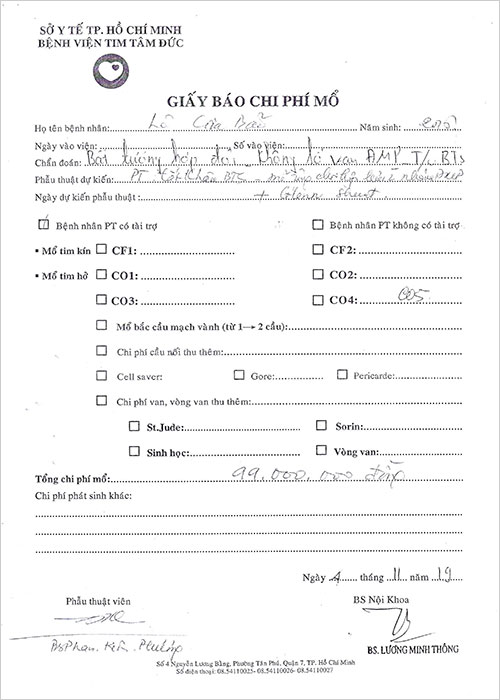 SỞ Y TẾ TP. HỒ CHÍ MINH
BỆNH VIỆN TIM TÂM ĐỨC
GIẤY BÁO CHI PHÍ MỔ
Họ tên bệnh nhân: Lê Gia Bảo Năm sinh:
Ngày vào viện: Số vào viện:
Chẩn đoán: Bất tương hợp đôi, không lỗ van AMP, T/c BTs
Phẫu thuật dự kiến: PT cắt khâu BTC - mở
Ngày dự kiến phẫu thuật: + Glenn Shunt.
Bệnh nhân PT có tài trợ Bệnh nhân PT không có tài trợ
▪ Mổ tim kín CF1: CF2:
▪ Mổ tim hở CO1: CO2:
CO3: CO4: CO5.
Mổ bắc cầu mạch vành (từ 1→ 2 cầu):
Chi phí cầu nối thu thêm:
Cell saver: Gore: Pericarde:
Chi phí van, vòng van thu thêm:
St.Jude: Sorin:
Sinh học: Vòng van:
Tổng chi phí mổ: 99.000.000 đồng
Chi phí phát sinh khác:
Ngày 4 tháng 11 năm 19
Phẫu thuật viên BS Nội Khoa
BS Phan Kim Phương BS. LƯƠNG MINH THÔNG
Số 4 Nguyễn Lương Bằng, Phường Tân Phú, Quận 7, TP. Hồ Chí Minh
Số điện thoại: 08.54110025- 08.54110026- 08.54110027